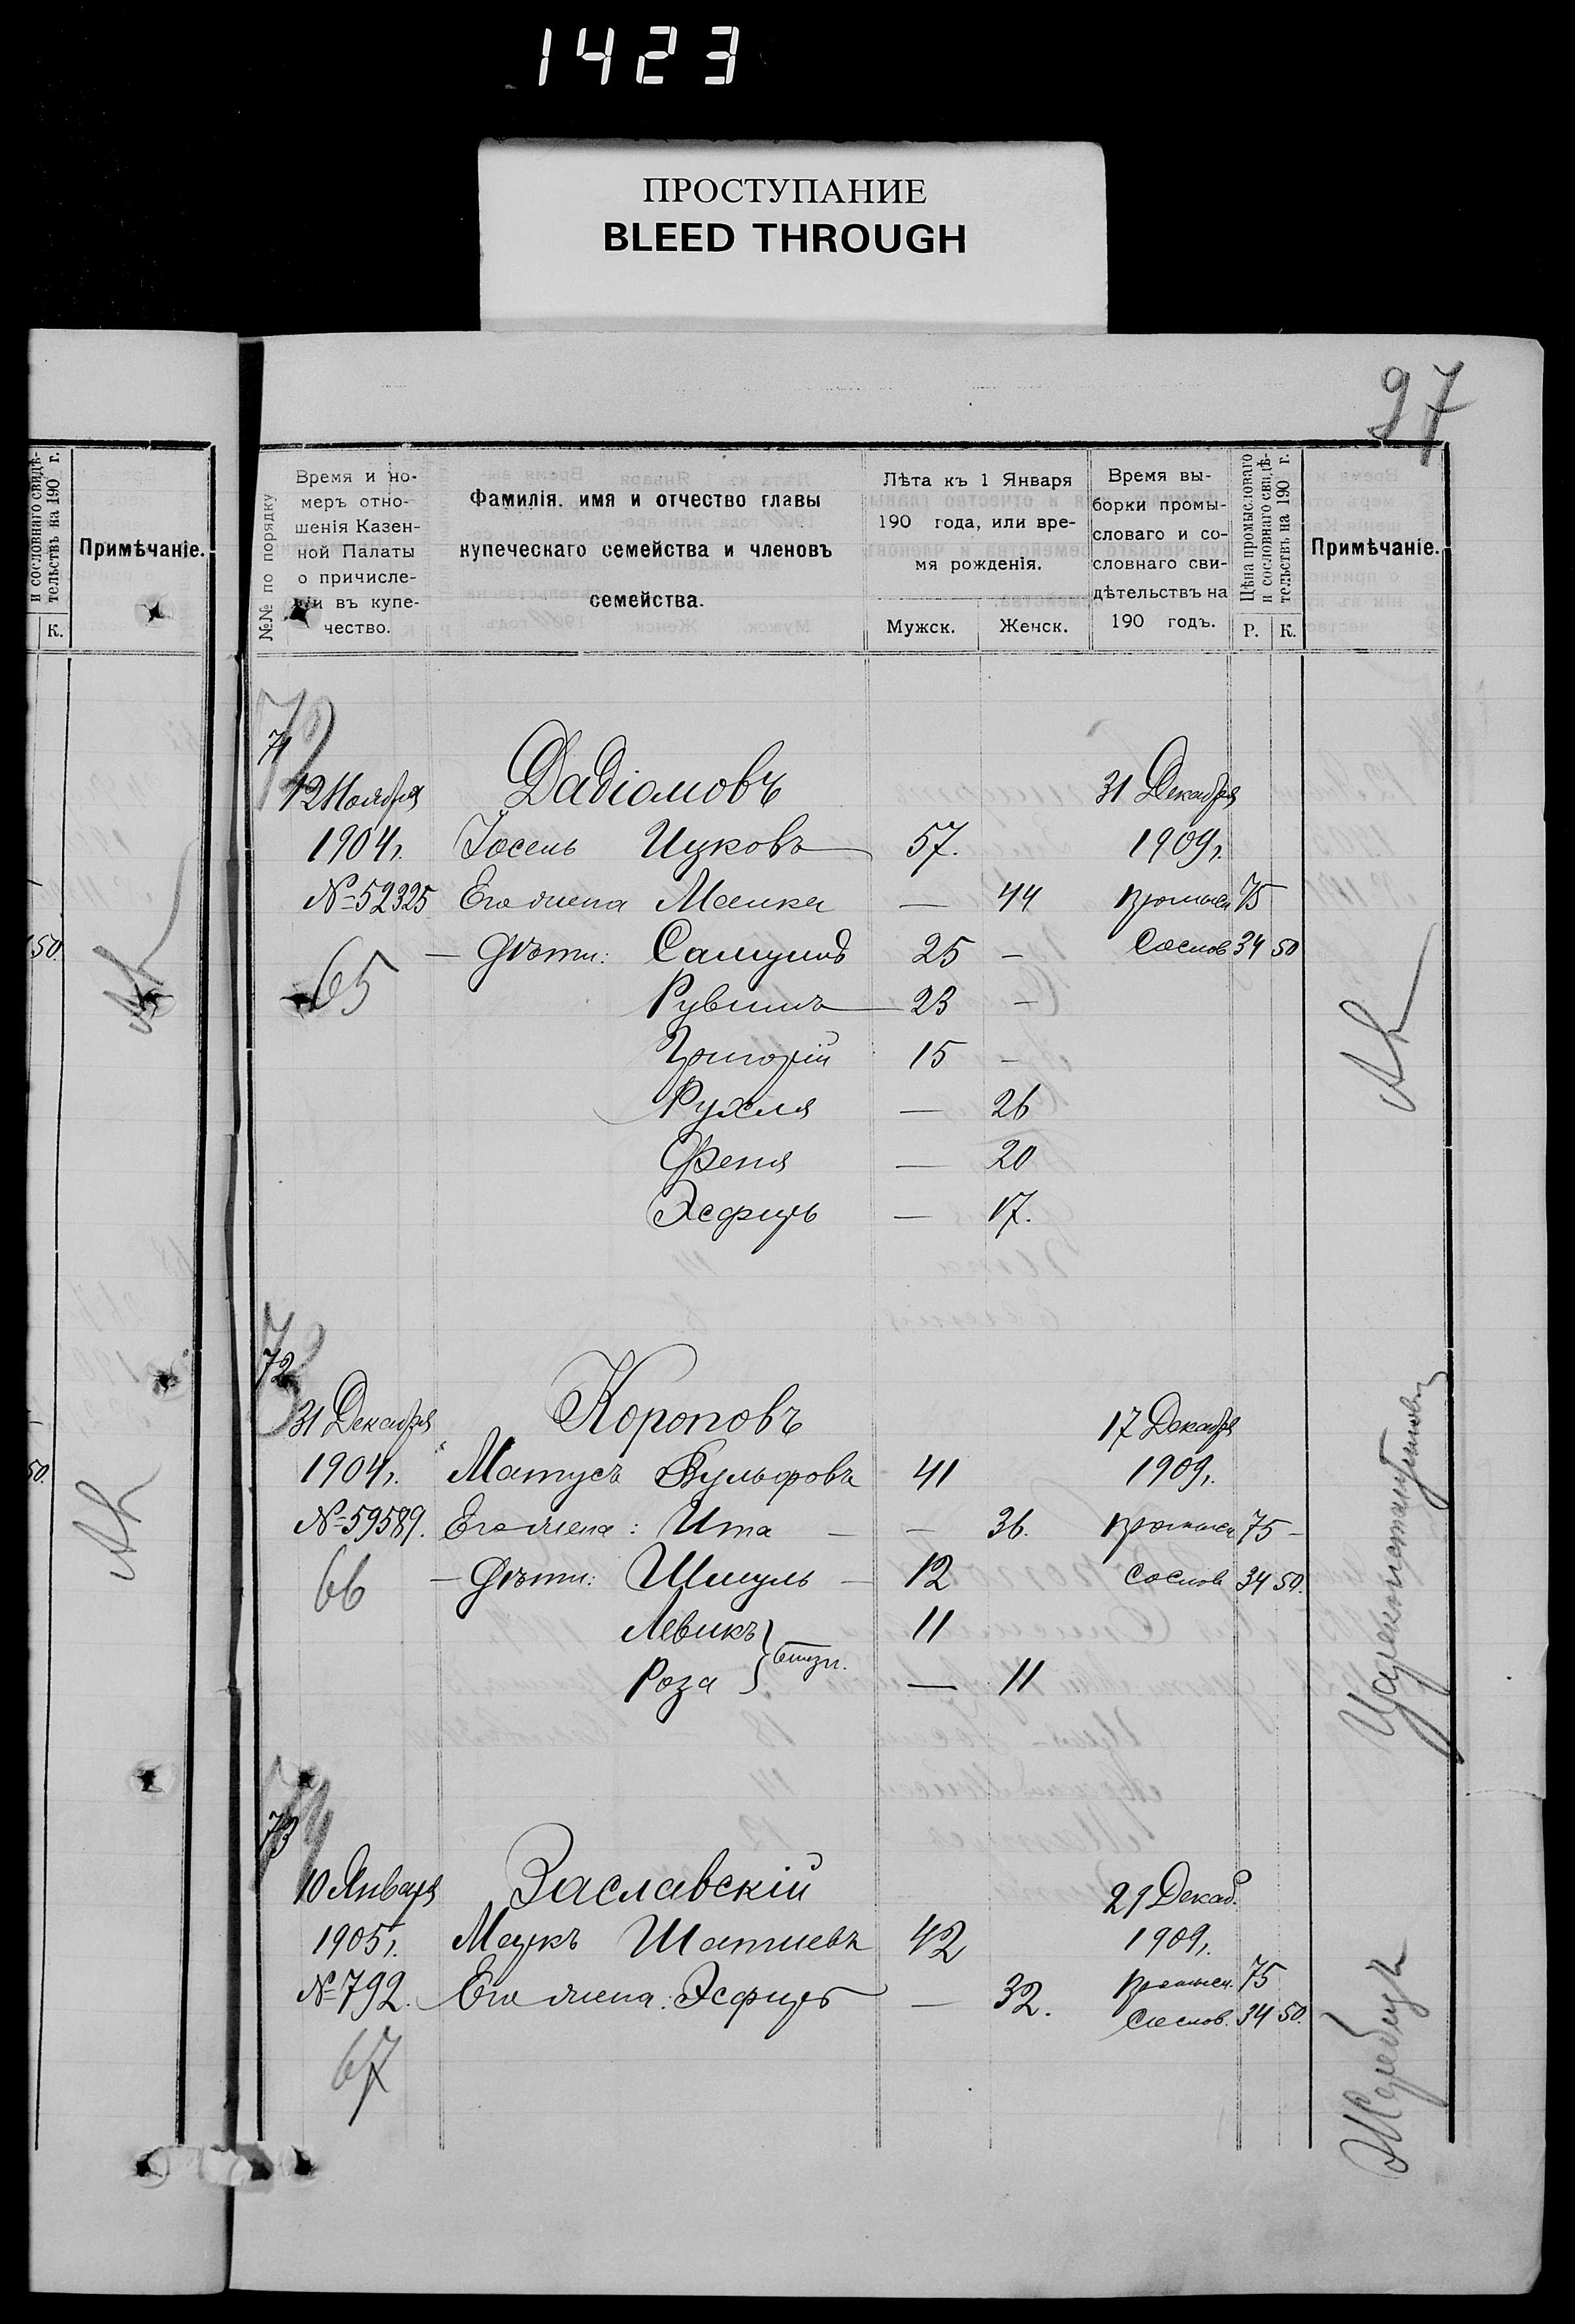 1423
ПРОСТУПАНИЕ
BLEED THROUGH
97
и сословнаго свидѣ-
тельствъ на 190 г.
К.
Примѣчаніе.
50.
50.
№№ по порядку
Время и но-
меръ отно-
шенія Казен-
ной Палаты
о причисле-
ніи въ купе-
чество.
Фамилія, имя и отчество главы
купеческаго семейства и членовъ
семейства.
Лѣта къ 1 Января
190 года, или вре-
мя рожденія.
Мужск. Женск.
Время вы-
борки промы-
словаго и со-
словнаго сви-
дѣтельствъ на
190 годъ.
Цѣна промысловаго
и сословнаго свидѣ-
тельствъ на 190 г.
Р. К.
Примѣчаніе.
72
71
12 Ноября Давіомовъ 31 Декабря
1904 г. Іосель Ицковъ 57. 1909 г.
№ 52325 Его жена — 44 промысл 75
— Дѣти: Самуилъ 25 — Сослов 34 50
65
Рувимъ — 23 —
Григорій 15 —
Рухля — 26
Феня — 20
Эсфирь — 17.
73
72
31 Декабря Короповъ 17 Декабря
1904 г. Матусъ Вульфовъ 41 1909 г.
№ 59589. Его жена: Ита — — 36. промысл 75 –
66 — Дѣти: Шмуль — 12 сослов 34 50.
Левикъ } близн. 11
Роза — 11
74
73
10 Января Заславскій 29 Декаб.
1905 г. Маркъ 42 1909 г.
№ 792. Его жена: Эсфирь — 32. промысл. 75
Сослов. 34 50.
67